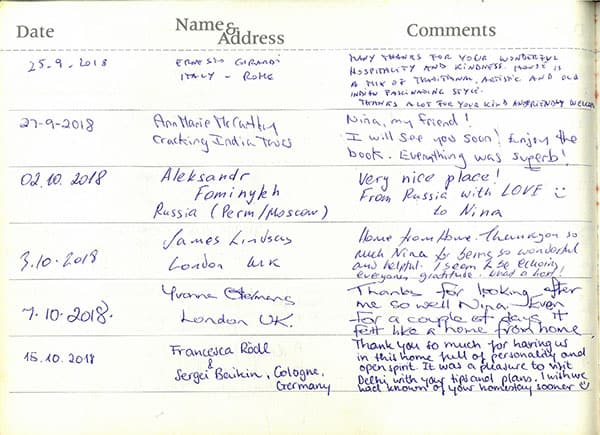 Date
Name & Address
Comments
25-9-2018
ERNESTO GIRARDI
ITALY - ROME
MANY THANKS FOR YOUR WONDERFUL
HOSPITALITY AND KINDNESS. HOUSE IS
A MIX OF TRADITIONAL, ARTISTIC AND OLD
INDIAN FASCINATING STYLE.
THANKS A LOT FOR YOUR KIND AND FRIENDLY WELCOME
27-9-2018
AnnMarie McCarthy
Cracking India Tours
Nina, my friend!
I will see you soon! Enjoy the
book. Everything was superb!
02.10.2018
Aleksandr
Fominykh
Russia (Perm/Moscow)
Very nice place!
From Russia with LOVE ☺
to Nina
3.10.2018
James Lindsay
London UK
Home from Home. Thank you so
much Nina for being so wonderful
and helpful. I seem to be echoing
everyones gratitude. What a host!
7.10.2018.
Yvonne
London UK.
Thanks for looking after
me so well Nina. Even
for a couple of days it
felt like a home from home
15.10.2018
Francesca Rödl
&
Sergei Baikin, Cologne,
Germany
Thank you so much for having us
in this home full of personality and
open spirit. It was a pleasure to visit
Delhi with your tips and plans. I wish we
had known of your homestay sooner ☺